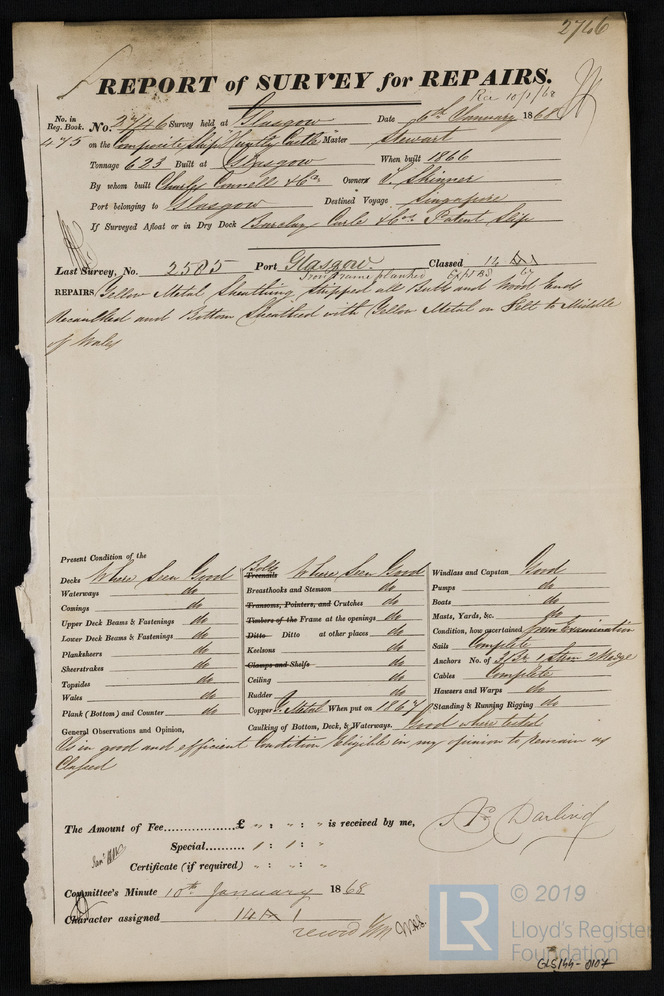 2746
REPORT of SURVEY for REPAIRS.
Rec 10/1/68
No. in Reg. Book. No. 2746 Survey held at Glasgow Date 6th January 1868
475 on the Composite Ship Huntly Castle Master Stewart
Tonnage 623 Built at Glasgow When built 1866
By whom built Charles Connell & Co. Owners T. Skinner
Port belonging to Glasgow Destined Voyage Singapore
If Surveyed Afloat or in Dry Dock Barclay Curle & Co's Patent Slip
Last Survey, No. 2585 Port Glasgow. Classed 14 A 1
Iron Frame planked
REPAIRS, Yellow Metal Sheathing stripped all Butts and Wood Ends
Recaulked and Bottom Sheathed with Yellow Metal on Felt to Middle
of Wales
Present Condition of the
Decks Where Seen Good
Waterways do
Comings do
Upper Deck Beams & Fastenings do
Lower Deck Beams & Fastenings do
Planksheers do
Sheerstrakes do
Topsides do
Wales do
Plank (Bottom) and Counter do
Bolts
Treenails Where Seen Good
Breasthooks and Stemson do
Transons, Pointers, and Crutches do
Timbers of the Frame at the openings do
Ditto Ditto at other places do
Keelsons do
Clamps and Shelfs do
Ceiling do
Rudder do
Copper Y. Metal When put on 1867
Caulking of Bottom, Deck, & Waterways. Good where tested
Windlass and Capstan Good
Pumps do
Boats do
Masts, Yards, &c. do
Condition, how ascertained from Examination
Sails Complete
Anchors No. of 3 Br 1 Stern 2 Kedge
Cables Complete
Hawsers and Warps do
Standing & Running Rigging do
General Observations and Opinion,
Is in good and efficient Condition Eligible in my opinion to remain as
Classed
The Amount of Fee £ " : " : " is received by me,
Special 1 : 1 : "
Certificate (if required) " : " : "
Darling
Committee's Minute 10th January 1868
Character assigned 14 A 1
© 2019
LR
Lloyd's Register
Foundation
GLS/44-0107